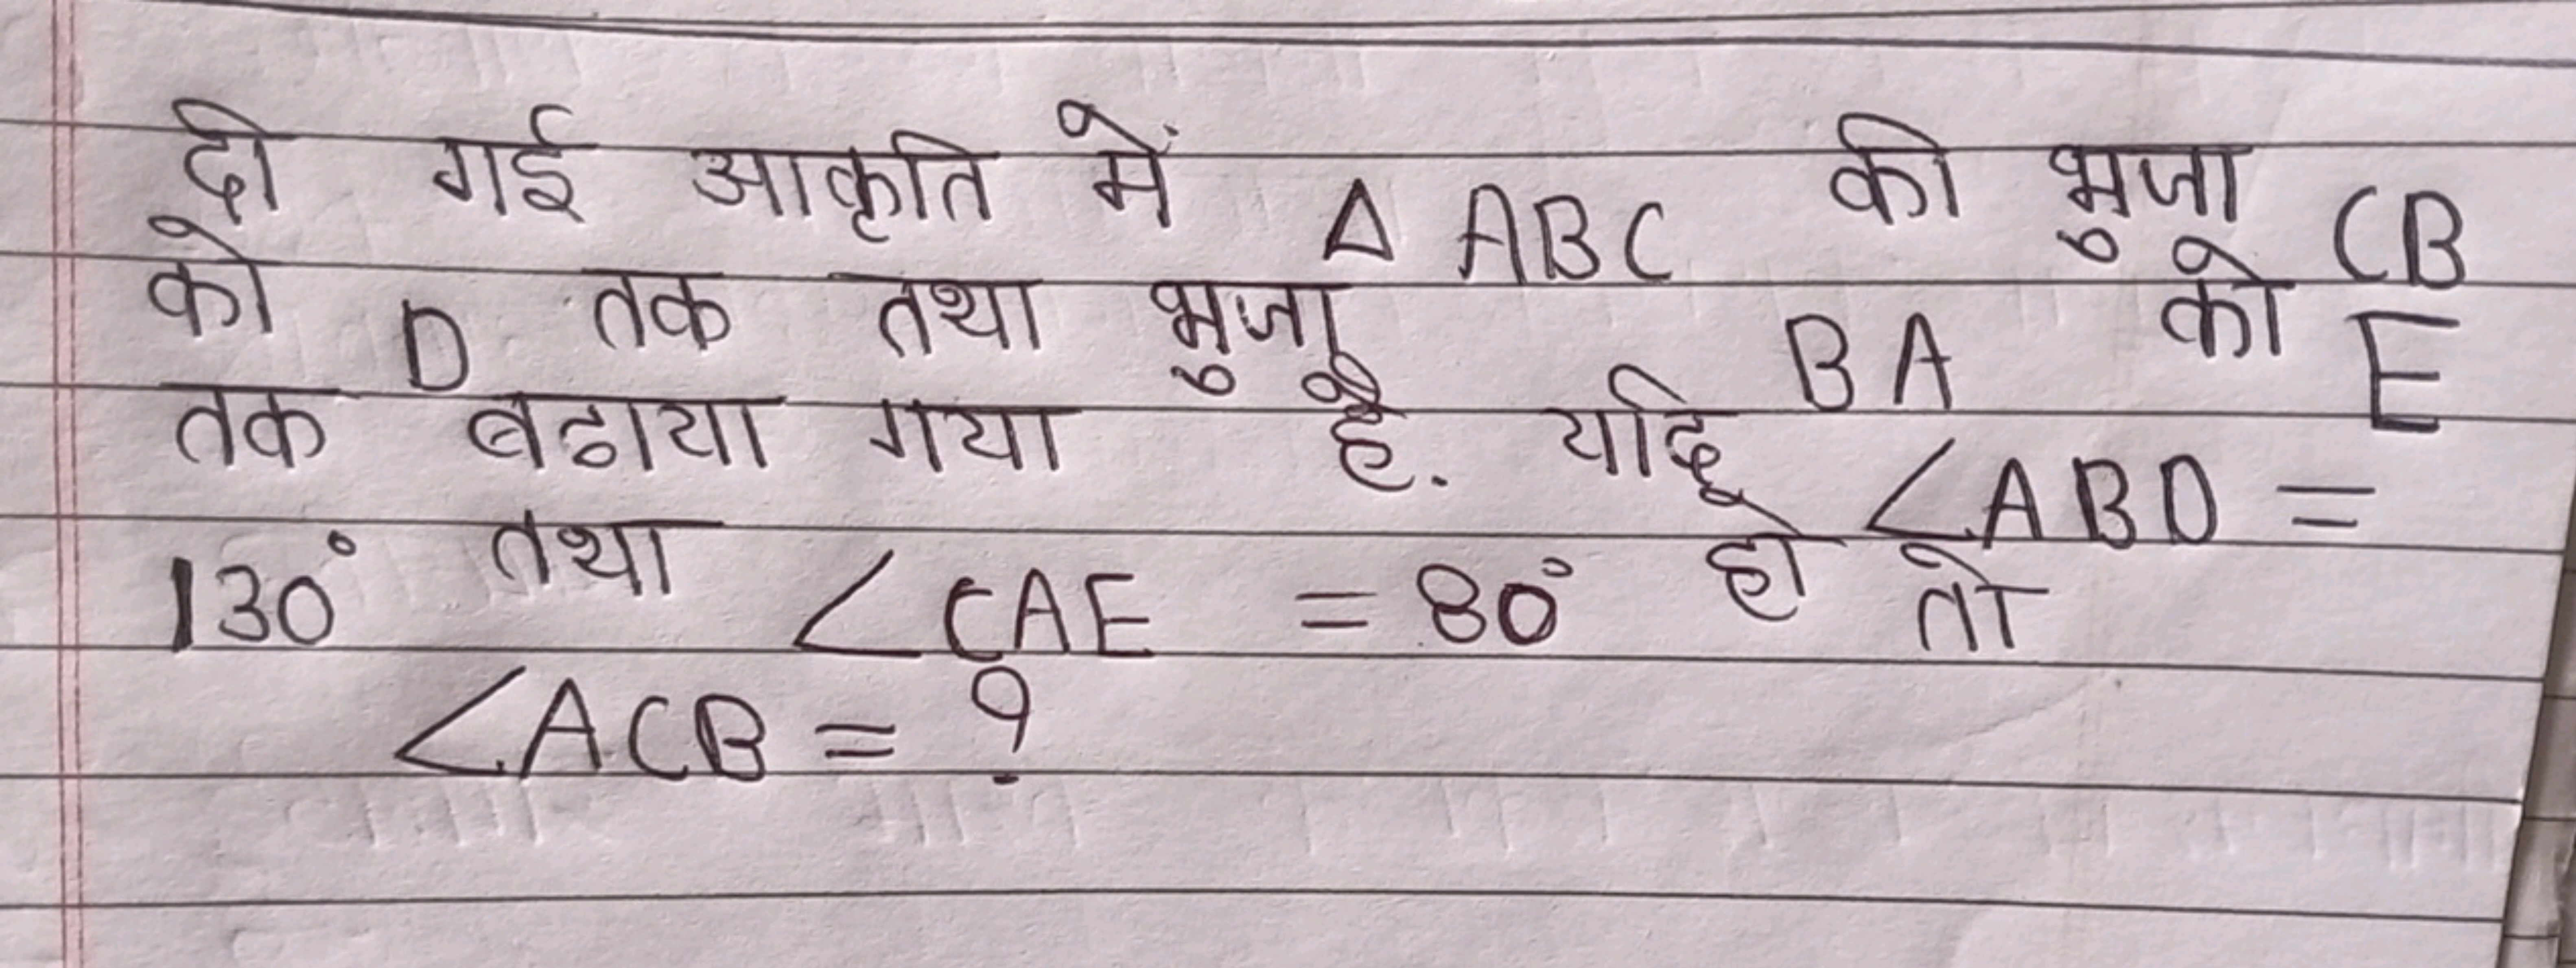 दी गई आकृति में △ ABC की भुजा CB
को D तक तथा भुजा BA को E
तक बढाया गया है. यदि ∠ABD =
130° तथा ∠CAE = 80° हो तो
∠ACB = ?